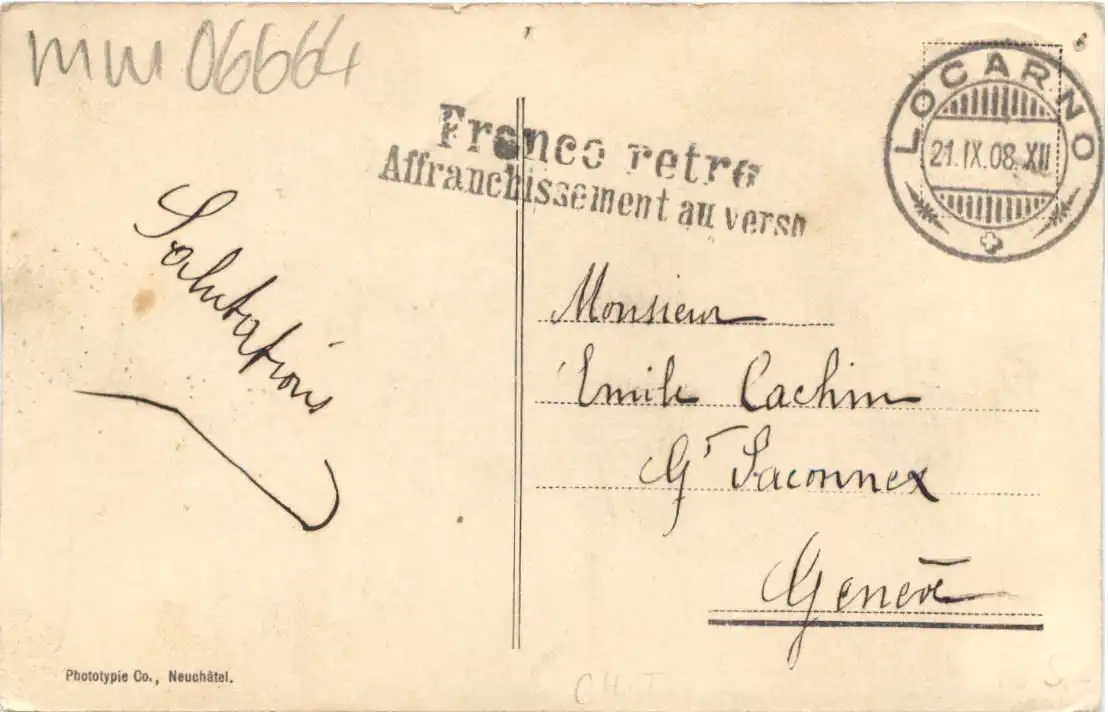 mm 06664
LOCARNO
21.IX.08.XII
Franco retro
Affranchissement au verso
Salutations
Monsieur
Emile Cachin
Gᵗ Saconnex
Genève
Phototypie Co., Neuchâtel.
CHT
5-